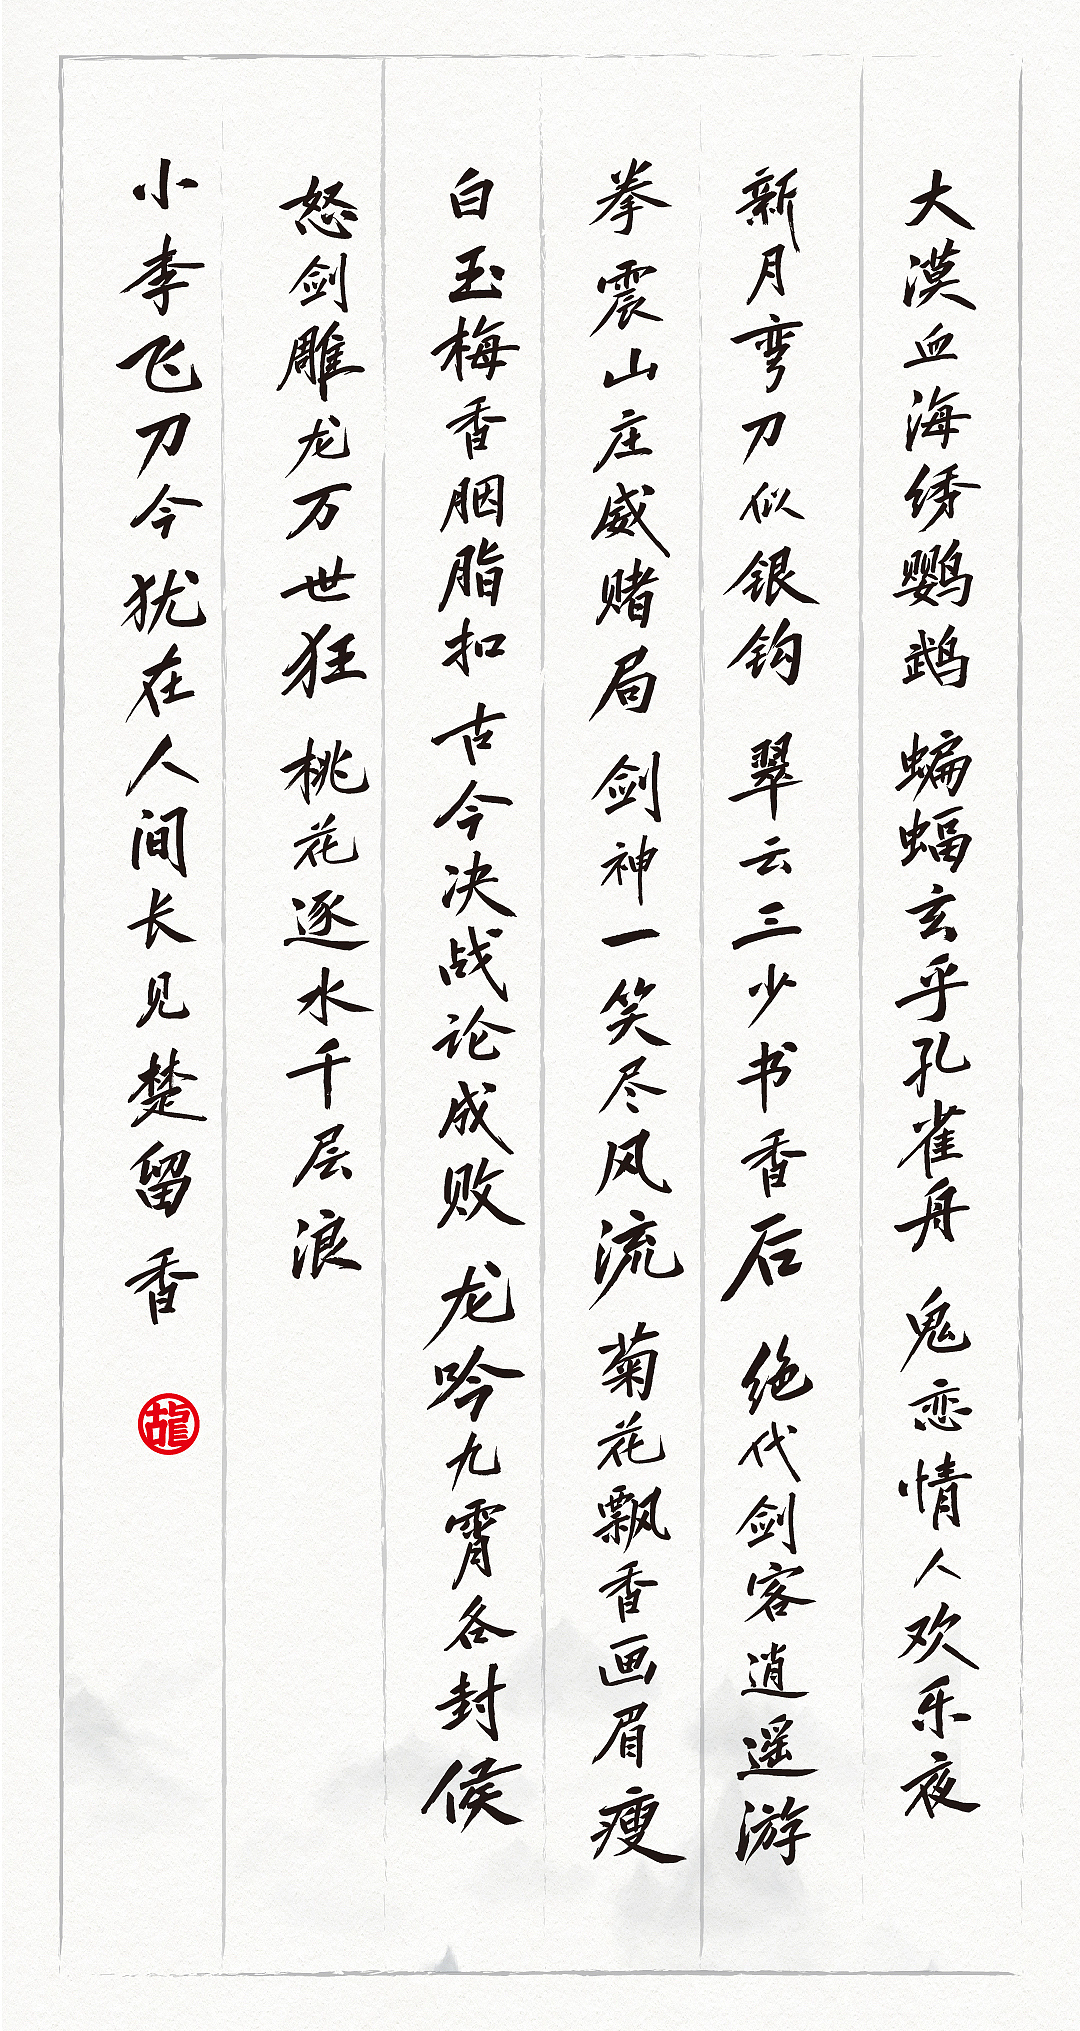 大漠血海绣鹦鹉 蝙蝠玄乎孔雀舟 鬼恋情人欢乐夜
新月弯刀似银钩 翠云三少书香后 绝代剑客逍遥游
拳震山庄威赌局 剑神一笑尽风流 菊花飘香画眉瘦
白玉梅香胭脂扣 古今决战论成败 龙吟九霄各封侯
怒剑雕龙万世狂 桃花逐水千层浪
小李飞刀今犹在人间长见楚留香